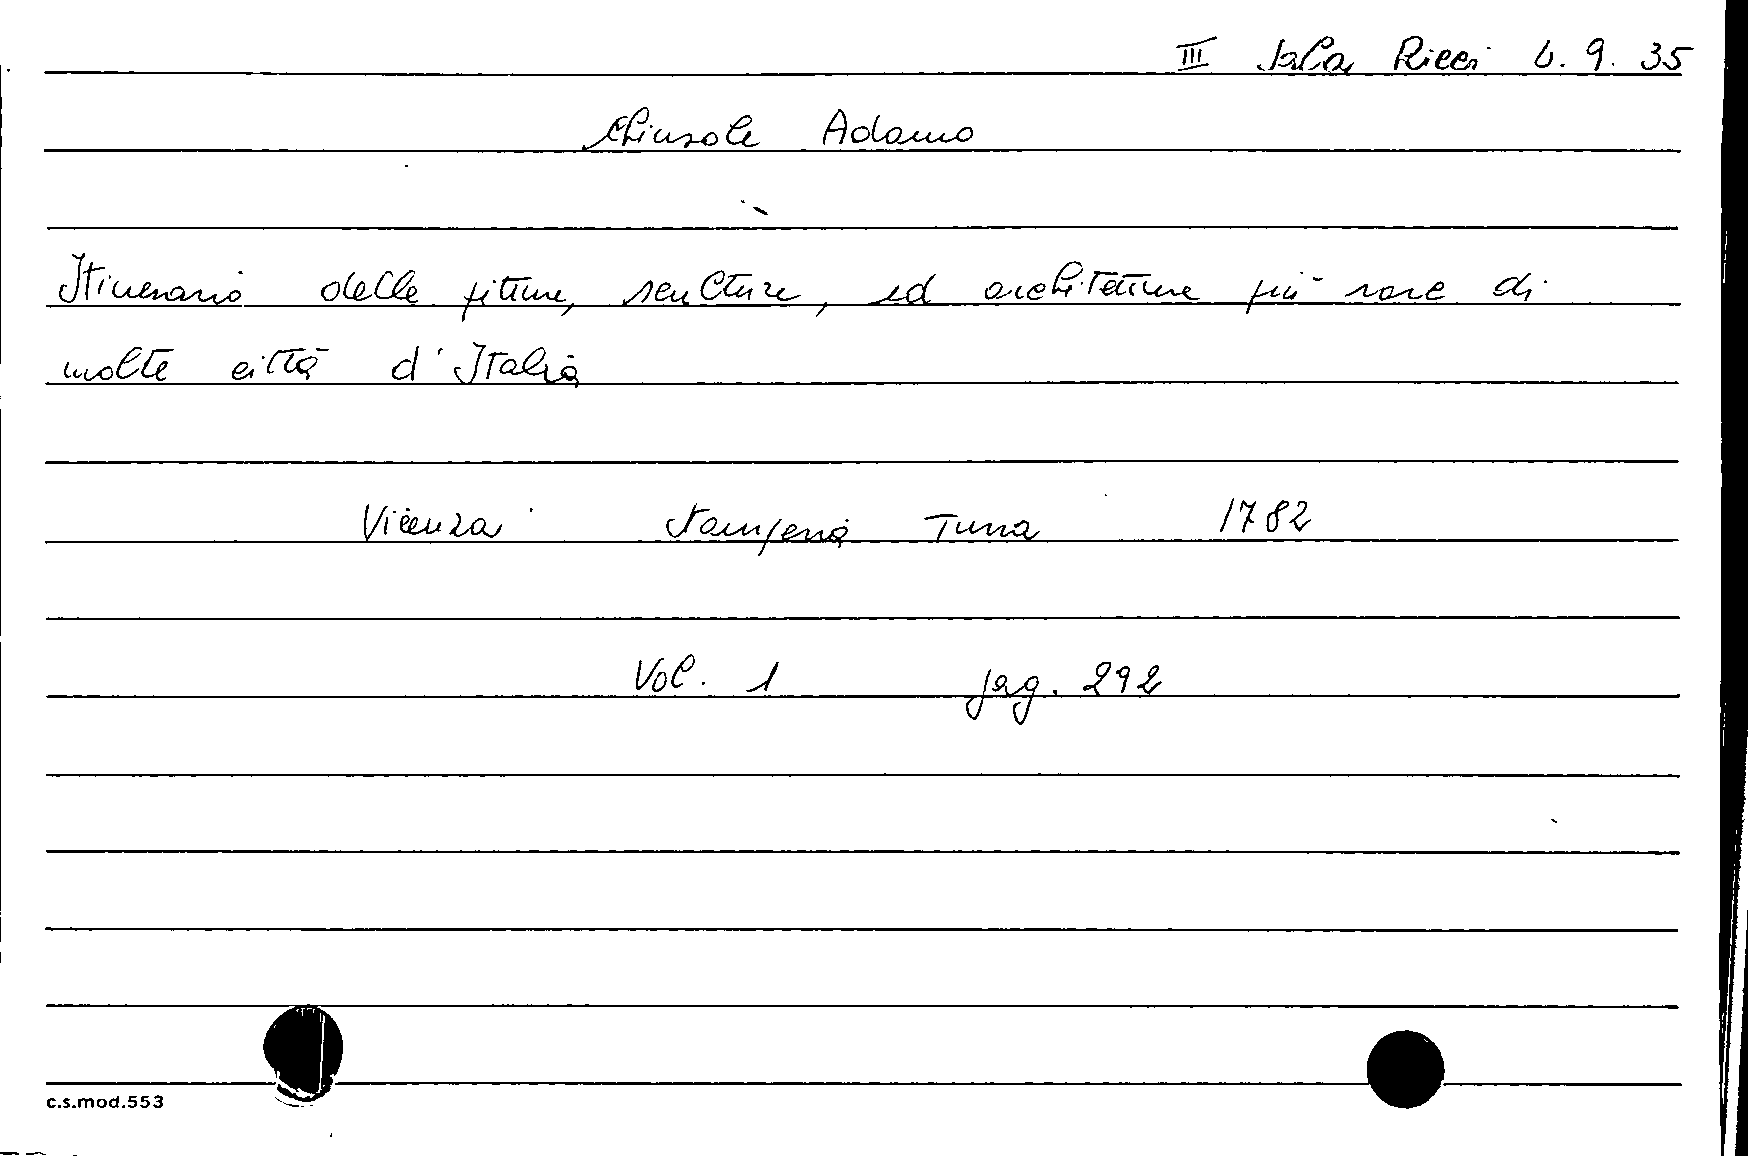 III Sala Ricci b. 9. 35
Chiusole Adamo
Itinerario delle pitture, sculture, ed architetture più rare di
molte città d'Italia
Vicenza Stamperia Turra 1782
Vol. 1 pag. 292
c.s.mod.553